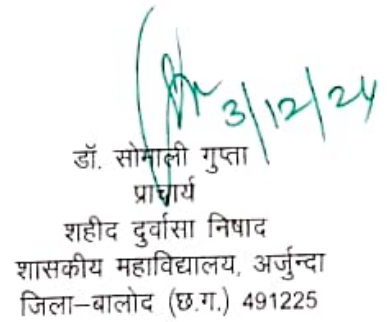 3/12/24
डॉ. सोमाली गुप्ता
प्राचार्य
शहीद दुर्वासा निषाद
शासकीय महाविद्यालय, अर्जुन्दा
जिला–बालोद (छ.ग.) 491225